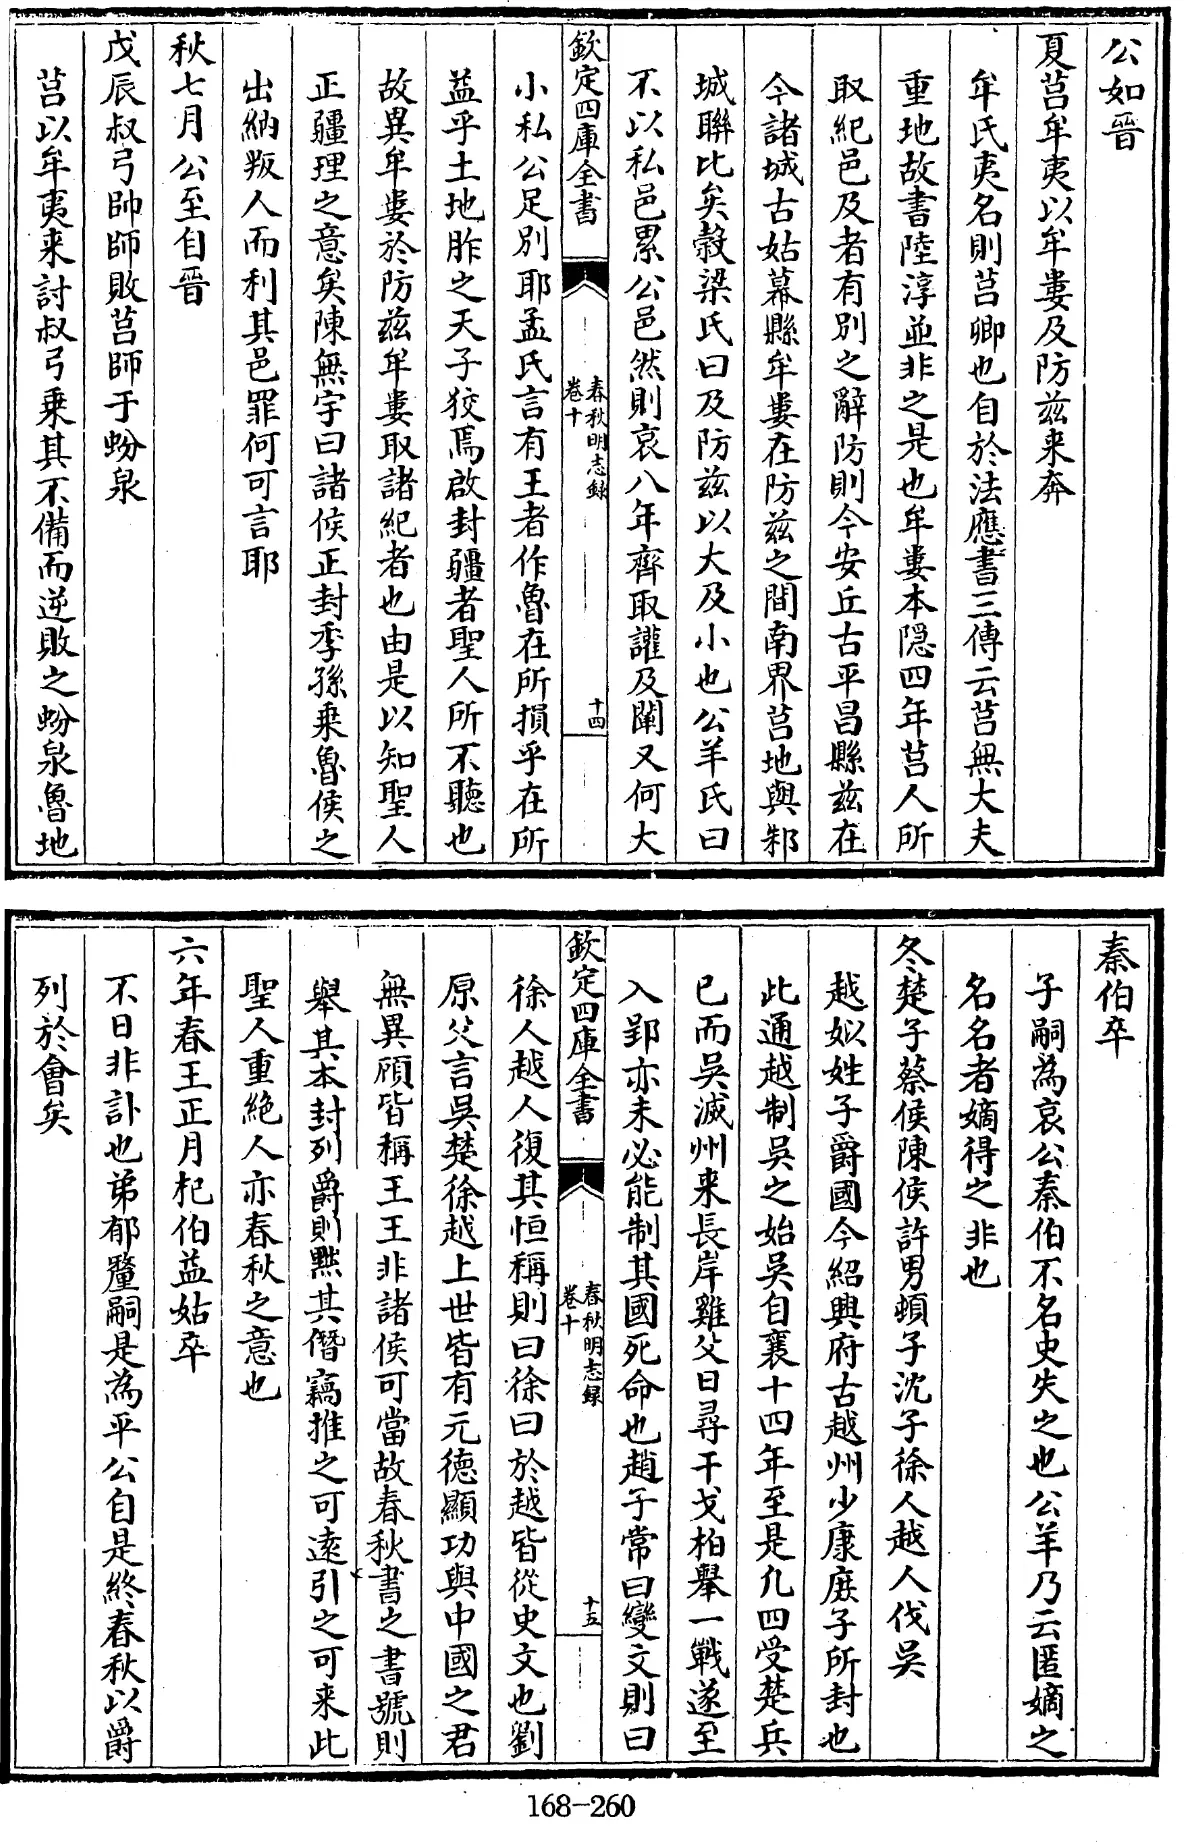 公如晉
夏莒牟夷以牟婁及防兹来奔
牟氏夷名則莒卿也自於法應書三傳云莒無大夫
重地故書陸淳並非之是也牟婁本隠四年莒人所
取紀邑及者有別之辭防則今安丘古平昌縣兹在
今諸城古姑幕縣牟婁在防兹之間南界莒地與邾
城聯比矣榖梁氏曰及防兹以大及小也公羊氏曰
不以私邑累公邑然則哀八年齊取讙及闡又何大
欽定四庫全書
春秋明志録
卷十
十四
小私公足別耶孟氏言有王者作魯在所損乎在所
益乎土地胙之天子狡焉啟封疆者聖人所不聽也
故異牟婁於防兹牟婁取諸紀者也由是以知聖人
正疆理之意矣陳無宇曰諸侯正封季孫乗魯侯之
出納叛人而利其邑罪何可言耶
秋七月公至自晉
戊辰叔弓帥師敗莒師于蚡泉
莒以牟夷来討叔弓乗其不備而逆敗之蚡泉魯地
秦伯卒
子嗣為哀公秦伯不名史失之也公羊乃云匿嫡之
名名者嫡得之非也
冬楚子蔡侯陳侯許男頓子沈子徐人越人伐吳
越姒姓子爵國今紹興府古越州少康庻子所封也
此通越制吳之始吳自襄十四年至是凢四受楚兵
已而吳滅州来長岸雞父日尋干戈柏舉一戰遂至
入郢亦未必能制其國死命也趙子常曰變文則曰
欽定四庫全書
春秋明志録
卷十
十五
徐人越人復其恒稱則曰徐曰於越皆從史文也劉
原父言吳楚徐越上世皆有元德顯功與中國之君
無異頎皆稱王王非諸侯可當故春秋書之書號則
舉其本封列爵則黙其僭竊推之可逺引之可来此
聖人重絶人亦春秋之意也
六年春王正月杞伯益姑卒
不日非訃也弟郁釐嗣是為平公自是終春秋以爵
列於會矣
168-260